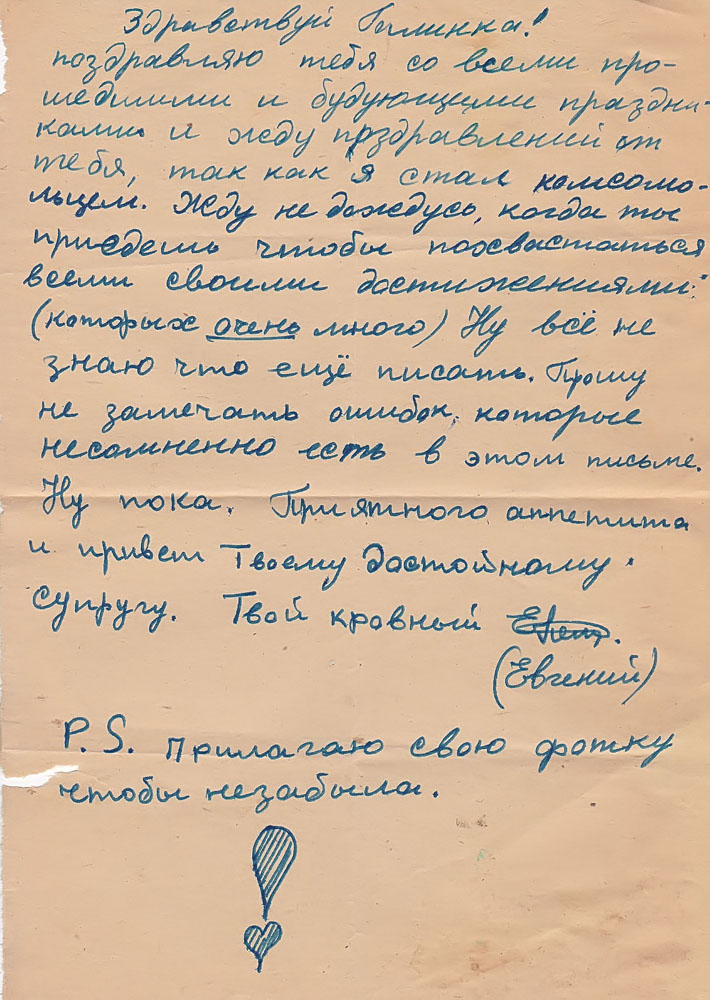 Здравствуй Галинка!
поздравляю тебя со всеми про-
шедшими и будующими праздни-
ками и жду поздравлений от
тебя, так как я стал комсомо-
льцем. Жду не дождусь, когда ты
приедешь чтобы похвастаться
всеми своими достижениями:
(которых очень много) Ну всё не
знаю что ещё писать. Прошу
не замечать ошибок, которые
несомненно есть в этом письме.
Ну пока. Приятного аппетита
и привет Твоему достойному
супругу. Твой кровный
(Евгений)
P.S. Прилагаю свою фотку
чтобы незабыла.